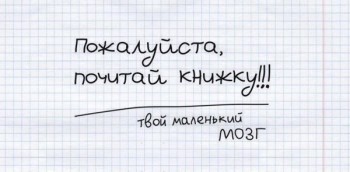 Пожалуйста,
почитай книжку!!!
твой маленький
МОЗГ